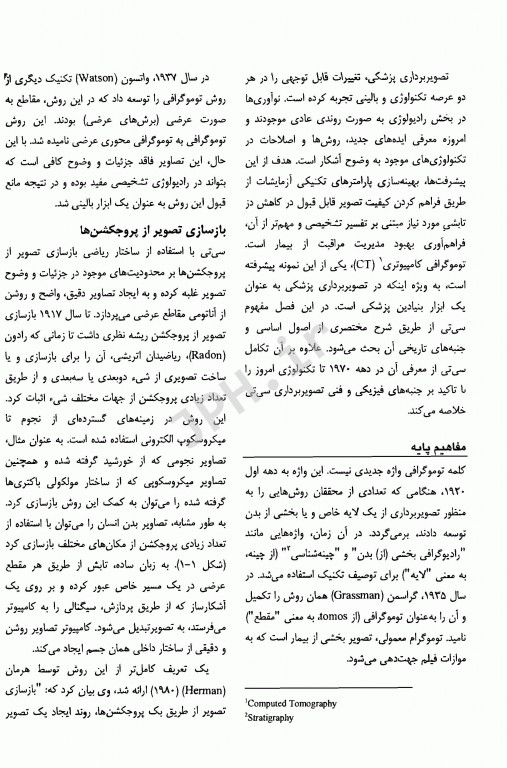 تصویربرداری پزشکی، تغییرات قابل توجهی را در هر
دو عرصه تکنولوژی و بالینی تجربه کرده است. نوآوری‌ها
در بخش رادیولوژی به صورت روندی عادی موجودند و
امروزه معرفی ایده‌های جدید، روش‌ها و اصلاحات در
تکنولوژی‌های موجود به وضوح آشکار است. هدف از این
پیشرفت‌ها، بهینه‌سازی پارامترهای تکنیکی آزمایشات از
طریق فراهم کردن کیفیت تصویر قابل قبول در کاهش دز
تابشی مورد نیاز مبتنی بر تفسیر تشخیصی و مهم‌تر از آن،
فراهم‌آوری بهبود مدیریت مراقبت از بیمار است.
توموگرافی کامپیوتری¹ (CT)، یکی از این نمونه پیشرفته
است، به ویژه اینکه در تصویربرداری پزشکی به عنوان
یک ابزار بنیادین پزشکی است. در این فصل مفهوم
سی‌تی از طریق شرح مختصری از اصول اساسی و
جنبه‌های تاریخی آن بحث می‌شود. علاوه بر آن تکامل
سی‌تی از معرفی آن در دهه ۱۹۷۰ تا تکنولوژی امروز را
با تاکید بر جنبه‌های فیزیکی و فنی تصویربرداری سی‌تی
خلاصه می‌کند.
مفاهیم پایه
کلمه توموگرافی واژه جدیدی نیست. این واژه به دهه اول
۱۹۲۰، هنگامی که تعدادی از محققان روش‌هایی را به
منظور تصویربرداری از یک لایه خاص و یا بخشی از بدن
توسعه دادند، برمی‌گردد. در آن زمان، واژه‌هایی مانند
"رادیوگرافی بخشی (از) بدن" و "چینه‌شناسی²" (از چینه،
به معنی "لایه") برای توصیف تکنیک استفاده می‌شد. در
سال ۱۹۳۵، گراسمن (Grassman) همان روش را تکمیل
و آن را به‌عنوان توموگرافی (از tomos، به معنی "مقطع")
نامید. توموگرام معمولی، تصویر بخشی از بیمار است که به
موازات فیلم جهت‌دهی می‌شود.
¹Computed Tomography
²Stratigraphy
در سال ۱۹۳۷، واتسون (Watson) تکنیک دیگری از
روش توموگرافی را توسعه داد که در این روش، مقاطع به
صورت عرضی (برش‌های عرضی) بودند. این روش
توموگرافی به توموگرافی محوری عرضی نامیده شد. با این
حال، این تصاویر فاقد جزئیات و وضوح کافی است که
بتواند در رادیولوژی تشخیصی مفید بوده و در نتیجه مانع
قبول این روش به عنوان یک ابزار بالینی شد.
بازسازی تصویر از پروجکشن‌ها
سی‌تی با استفاده از ساختار ریاضی بازسازی تصویر از
پروجکشن‌ها بر محدودیت‌های موجود در جزئیات و وضوح
تصویر غلبه کرده و به ایجاد تصاویر دقیق، واضح و روشن
از آناتومی مقاطع عرضی می‌پردازد. تا سال ۱۹۱۷ بازسازی
تصویر از پروجکشن ریشه نظری داشت تا زمانی که رادون
(Radon)، ریاضیدان اتریشی، آن را برای بازسازی و یا
ساخت تصویری از شیء دوبعدی یا سه‌بعدی و از طریق
تعداد زیادی پروجکشن از جهات مختلف شیء اثبات کرد.
این روش در زمینه‌های گسترده‌ای از نجوم تا
میکروسکوپ الکترونی استفاده شده است. به عنوان مثال،
تصاویر نجومی که از خورشید گرفته شده و همچنین
تصاویر میکروسکوپی که از ساختار مولکولی باکتری‌ها
گرفته شده را می‌توان به کمک این روش بازسازی کرد.
به طور مشابه، تصاویر بدن انسان را می‌توان با استفاده از
تعداد زیادی پروجکشن از مکان‌های مختلف بازسازی کرد
(شکل ۱-۱). به زبان ساده، تابش از طریق هر مقطع
عرضی در یک مسیر خاص عبور کرده و بر روی یک
آشکارساز که از طریق پردازش، سیگنالی را به کامپیوتر
می‌فرستد، به تصویرتبدیل می‌شود. کامپیوتر تصاویر روشن
و دقیقی از ساختار داخلی همان جسم ایجاد می‌کند.
یک تعریف کامل‌تر از این روش توسط هرمان
(Herman) (۱۹۸۰) ارائه شد، وی بیان کرد که: "بازسازی
تصویر از طریق یک پروجکشن‌ها، روند ایجاد یک تصویر